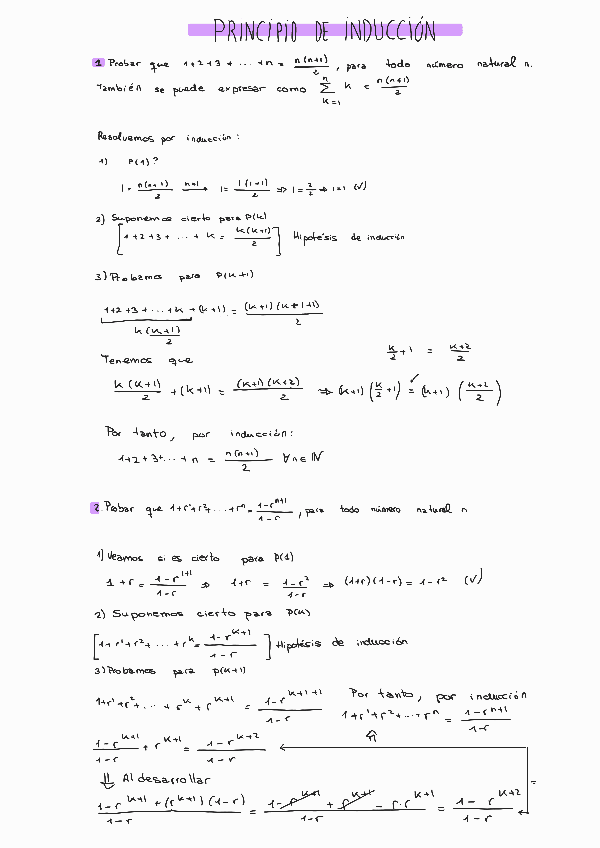 PRINCIPIO DE INDUCCIÓN
1 Probar que 1+2+3+...+n = n(n+1)/2, para todo número natural n.
También se puede expresar como ∑_{k=1}^{n} k = n(n+1)/2
Resolvemos por inducción:
1) P(1)?
1 = n(n+1)/2 n=1 → 1 = 1(1+1)/2 => 1 = 2/2 => 1=1 (√)
2) Suponemos cierto para P(k)
[1+2+3+...+k = k(k+1)/2] Hipótesis de inducción
3) Probamos para P(k+1)
1+2+3+...+k+(k+1) = (k+1)(k+1+1)/2
k(k+1)/2
k/2+1 = k+2/2
Tenemos que
k(k+1)/2 + (k+1) = (k+1)(k+2)/2 => (k+1)(k/2+1) = (k+1)(k+2/2)
Por tanto, por inducción:
1+2+3+...+n = n(n+1)/2 ∀n∈ℕ
2 Probar que 1+r¹+r²+...+rⁿ = 1-r^{n+1}/1-r, para todo número natural n
1) Veamos si es cierto para P(1)
1+r = 1-r^{1+1}/1-r => 1+r = 1-r²/1-r => (1+r)(1-r) = 1-r² (√)
2) Suponemos cierto para P(k)
[1+r¹+r²+...+r^k = 1-r^{k+1}/1-r] Hipótesis de inducción
3) Probamos para P(k+1)
1+r¹+r²+...+r^k+r^{k+1} = 1-r^{k+1+1}/1-r
Por tanto, por inducción
1+r¹+r²+...+rⁿ = 1-r^{n+1}/1-r
1-r^{k+1}/1-r + r^{k+1} = 1-r^{k+2}/1-r
⇓ Al desarrollar
=
1-r^{k+1}+(r^{k+1})(1-r)/1-r = 1-r^{k+1}+r^{k+1}-r·r^{k+1}/1-r = 1-r^{k+2}/1-r